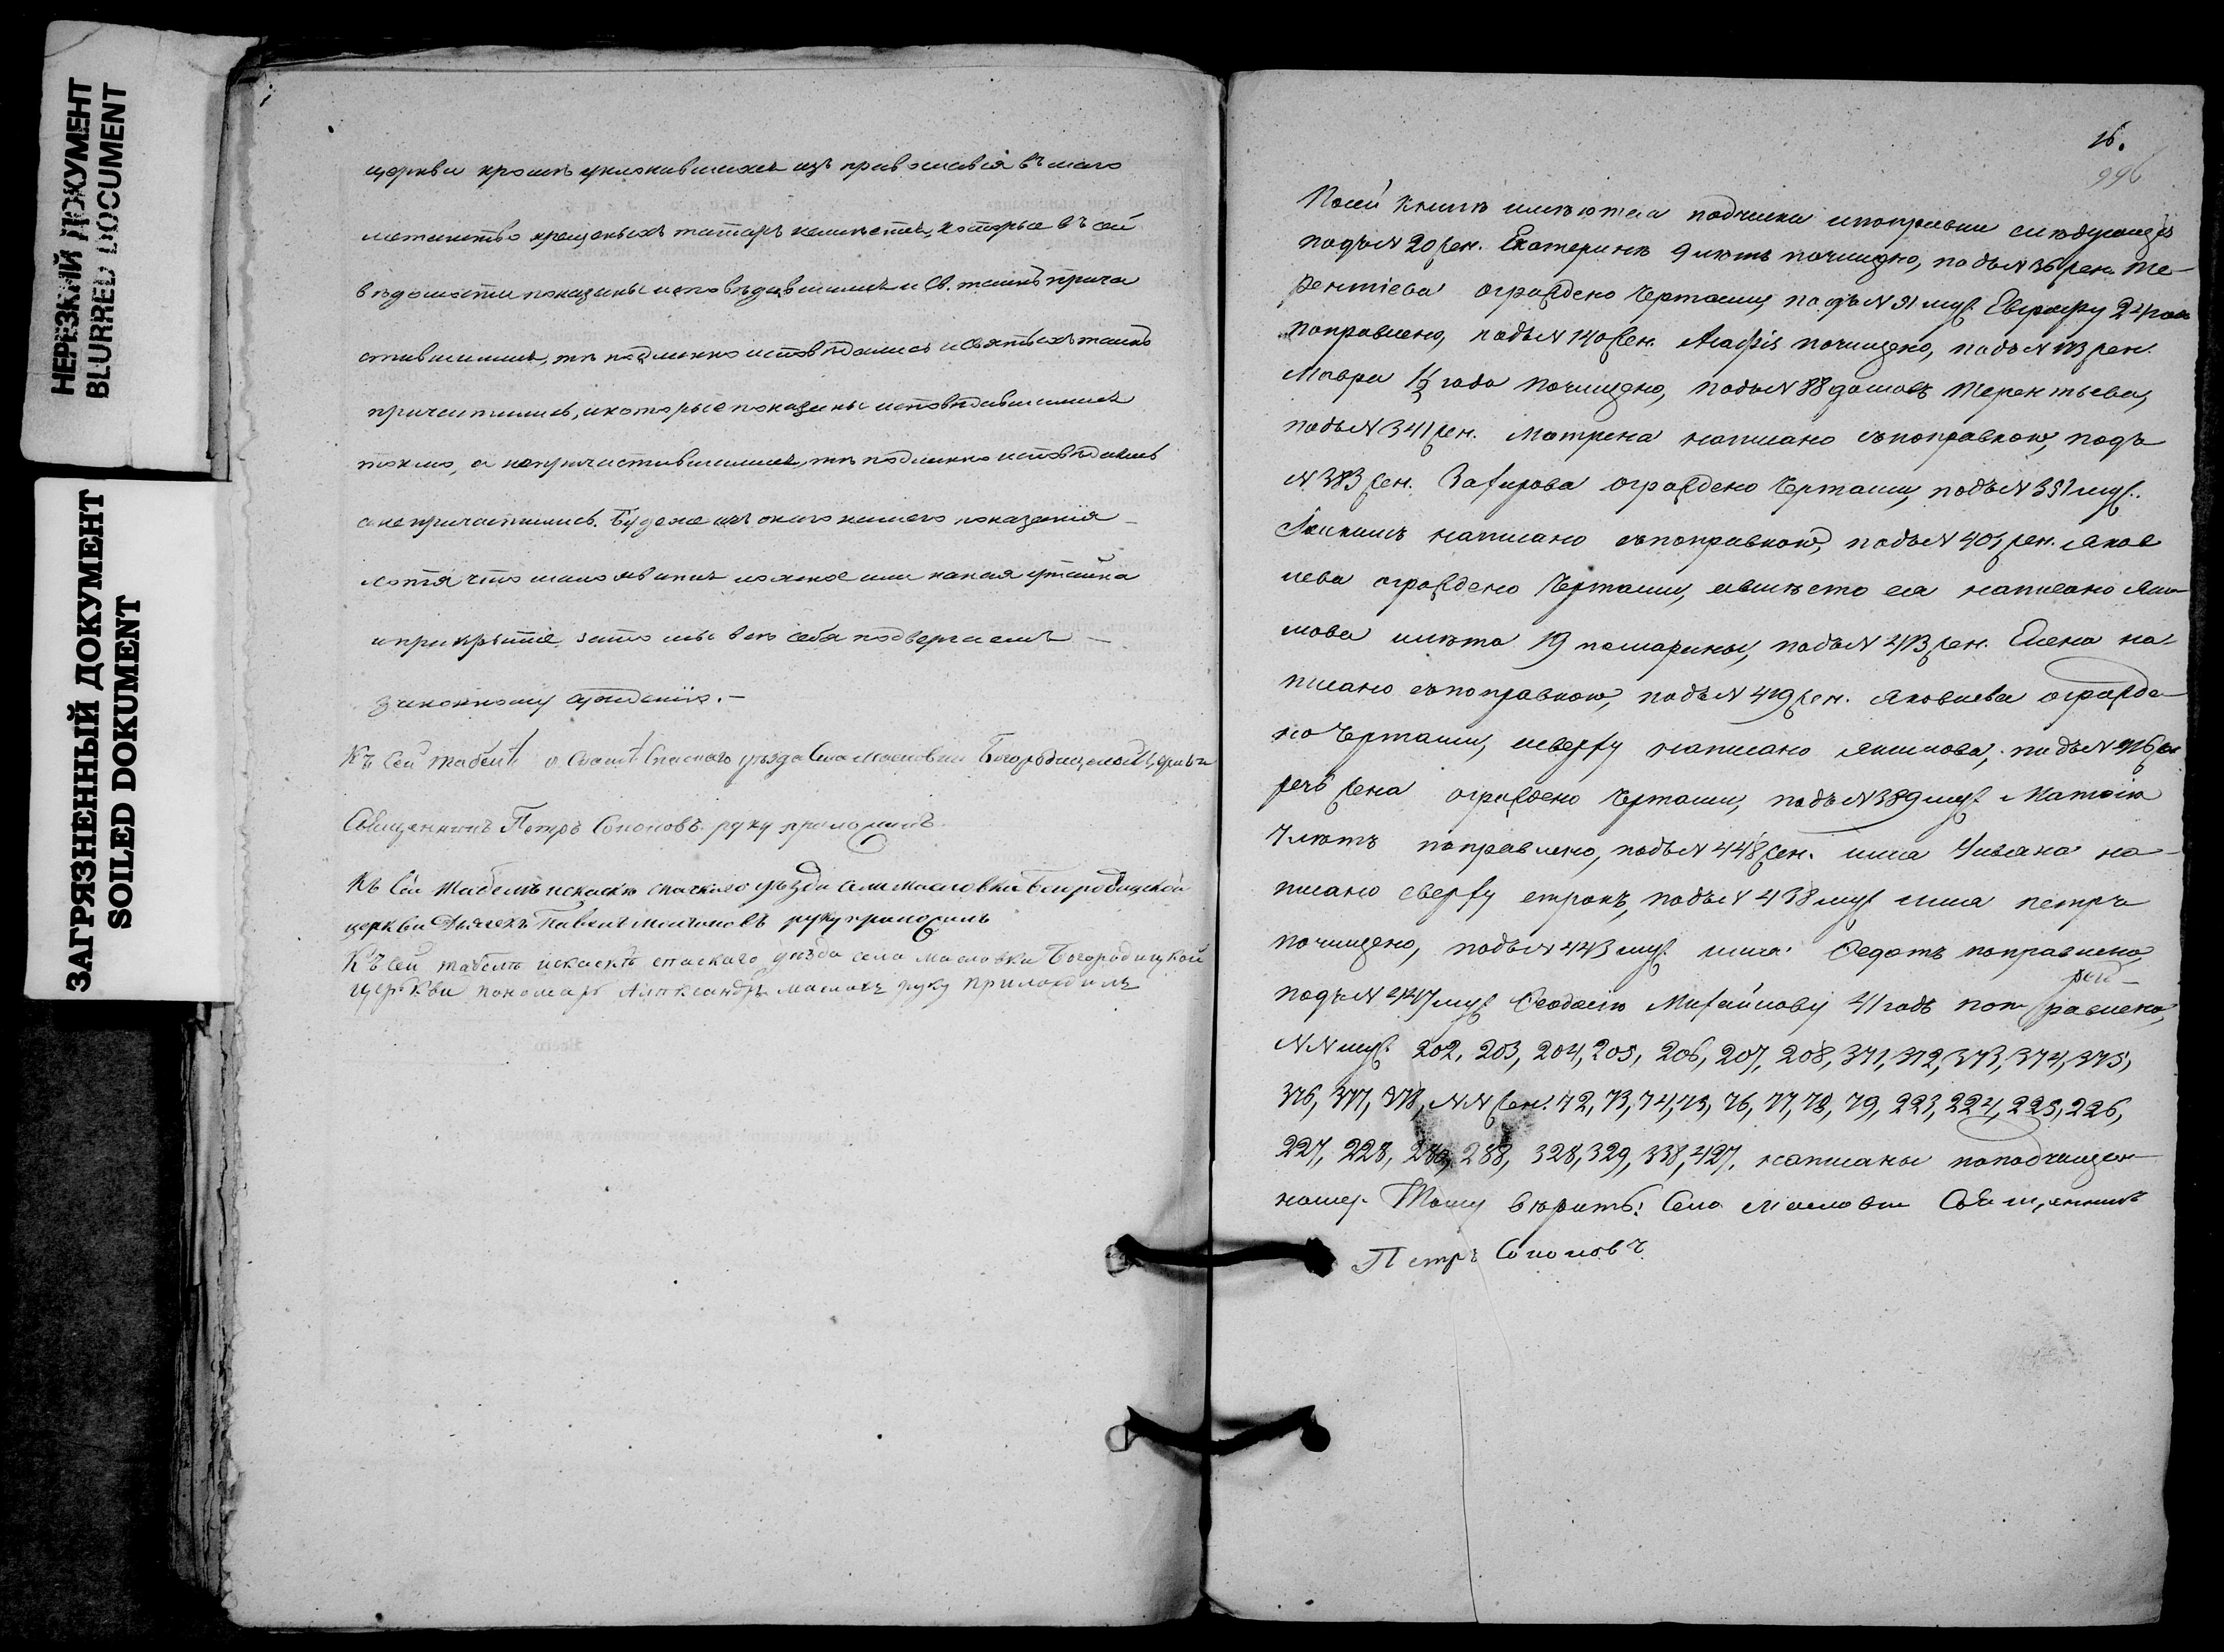 НЕРЕЗКИЙ ДОКУМЕНТ
BLURRED DOCUMENT
ЗАГРЯЗНЕННЫЙ ДОКУМЕНТ
SOILED DOKUMENT
церкви кромѣ уклонившихся изъ православія въ маго
метанство крещеныхъ татаръ которые въ сей
вѣдомости показаны исповѣдавшимися и Св. таинъ прича
стившимися, тѣ подлинно исповѣдались и святыхъ таинъ
причастились, и которые показаны исповѣдавшимися
токмо, а непричастившимися, тѣ подлинно исповѣдались
а не причастились. Буде же изъ онаго нашего показанія
хотя что мало явится ложное или какая утайка
и прикрытіе, за то мы всѣ себя подвергаемъ
законному сужденію.—
Къ сей табели Спаскаго уѣзда Села Масловки Богородицкой Церкви
Священникъ Петръ Соколовъ руку приложилъ.
Къ сей табелѣ и скаскѣ спаскаго уѣзда села масловки Богородицкой
церкви Дьячекъ Павелъ руку приложилъ
Къ сей табелѣ искаскѣ спаскаго уѣзда села масловки Богородицкой
церкви пономарь Александръ масловъ руку приложилъ
16.
996
По сей книгѣ имѣются подчистки и поправки слѣдующія
подъ N 20 жен. Екатеринѣ 9 лѣтъ почищено, подъ N 36 жен. Те-
рентіева ограждено чертами, подъ N 91 муж. 24 года
поправлено, подъ N 140 жен. почищено, подъ N 173 жен.
Мавра 1½ года почищено, подъ N 88 домовъ Терентьева,
подъ N 341 жен. Матрена написано съ поправкою, подъ
N 383 жен. Захарова ограждено чертами, подъ N 351 муж.
написано съ поправкою, подъ N 401 жен. Яков
лева ограждено чертами, а вмѣсто ея написано Яки
мова лѣта 19 помараны, подъ N 413 жен. Елена на-
писано съ поправкою, подъ N 419 жен. Яковлева огражде-
но чертами, и сверху написано Якимова, подъ N 426 жен
речь жена ограждено чертами, подъ N 389 муж. Матвію
7 лѣтъ поправлено, подъ N 448 жен. имя Уліана на-
писано сверху строкъ, подъ N 438 муж. имя петръ
почищено, подъ N 443 муж. имя Федотъ поправлено,
подъ N 447 муж. Феодосію Михайлову 41 годъ поправлено,
NN муж. 202, 203, 204, 205, 206, 207, 208, 371, 372, 373, 374, 375,
376, 377, 378, NN жен. 72, 73, 74, 75, 76, 77, 78, 79, 223, 224, 225, 226,
227, 228, 288, 328, 329, 338, 427, написаны по подчищен
ному. Тому вѣрить: Села Масловки Священникъ
Петръ Соколовъ.